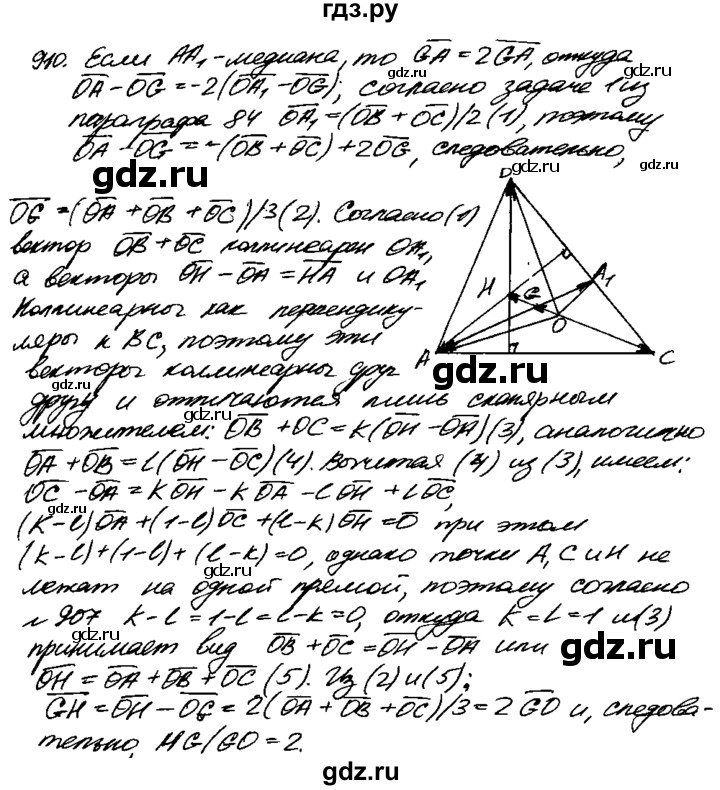 гдз.ру
910. Если AA₁-медиана, то \overline{GA} = 2\overline{GA}, откуда
\overline{OA} - \overline{OG} = -2(\overline{OA₁} - \overline{OG}), согласно задаче 1 из
gdz.ru gdz.ru
параграфа 84 \overline{OA₁} = (\overline{OB} + \overline{OC})/2 (1), поэтому
\overline{OA} - \overline{OG} = -(\overline{OB} + \overline{OC}) + 2\overline{OG}, следовательно,
gdz.ru gdz.ru
\overline{OG} = (\overline{OA} + \overline{OB} + \overline{OC})/3 (2). Согласно (1)
вектор \overline{OB} + \overline{OC} коллинеарен OA₁,
gdz.ru
а векторы \overline{OH} - \overline{OA} = \overline{HA} и OA₁
Коллинеарны как перпендику-
ляры к BC, поэтому эти
векторы коллинеарны друг
gdz.ru
другу и отличаются лишь скалярным
множителем: \overline{OB} + \overline{OC} = k(\overline{OH} - \overline{OA}) (3), аналогично
gdz.ru
\overline{OA} + \overline{OB} = l(\overline{OH} - \overline{OC}) (4). Вычитая (4) из (3), имеем:
\overline{OC} - \overline{OA} = k\overline{OH} - k\overline{OA} - l\overline{OH} + l\overline{OC},
gdz.ru gdz.ru
(k-l)\overline{OA} + (1-l)\overline{OC} + (l-k)\overline{OH} = \overline{0} при этом
(k-l) + (1-l) + (l-k) = 0, однако точки A, C и H не
gdz.ru
лежат на одной прямой, поэтому согласно
№ 907 k-l = 1-l = l-k = 0, откуда k = l = 1 и (3)
gdz.ru
принимает вид \overline{OB} + \overline{OC} = \overline{OH} - \overline{OA} или
gdz.ru
\overline{OH} = \overline{OA} + \overline{OB} + \overline{OC} (5). Из (2) и (5):
\overline{GH} = \overline{OH} - \overline{OG} = 2(\overline{OA} + \overline{OB} + \overline{OC})/3 = 2\overline{GO} и, следова-
gdz.ru
тельно, HG/GO = 2.
gdz.ru
H
G
A₁
O
A
C
gdz.ru
gdz.ru